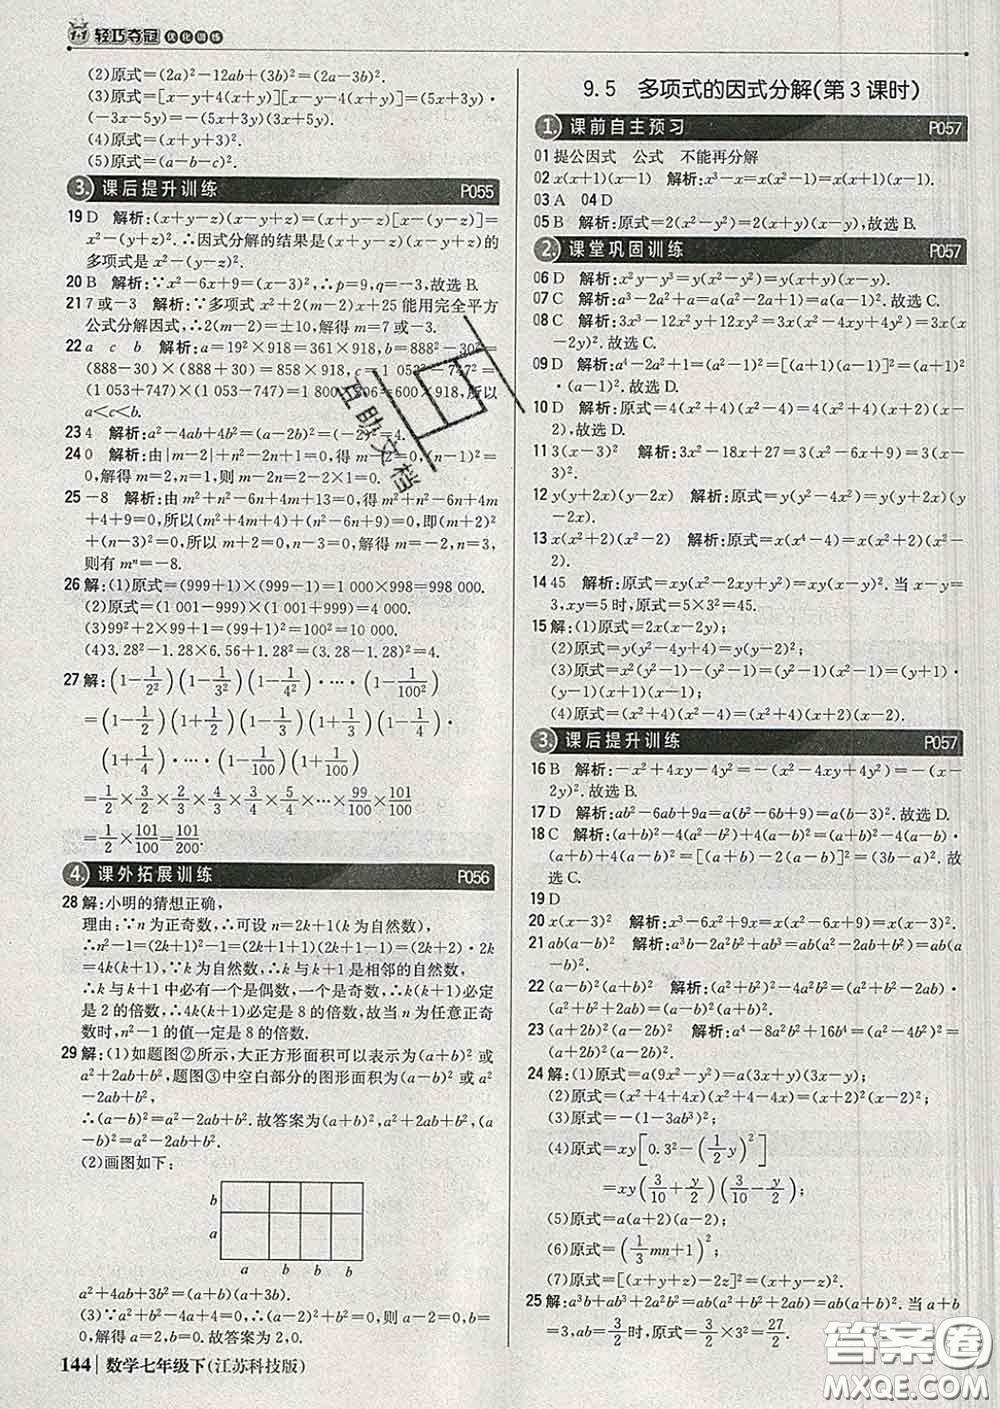 1+1 轻巧夺冠 优化训练
(2)原式=(2a)²-12ab+(3b)²=(2a-3b)².
(3)原式=[x-y+4(x+y)][x-y-4(x+y)]=(5x+3y)·
(-3x-5y)=-(5x+3y)(3x+5y).
(4)原式=(x+y+3)².
(5)原式=(a-b-c)².
3. 课后提升训练 P055
19 D 解析:(x+y-z)(x-y+z)=(x+y-z)[x-(y-z)]=
x²-(y-z)².∴因式分解的结果是(x+y-z)(x-y+z)的
多项式是x²-(y-z)².
20 B 解析:∵x²-6x+9=(x-3)²,∴p=9,q=-3,故选B.
21 7或-3 解析:∵多项式x²+2(m-2)x+25能用完全平方
公式分解因式,∴2(m-2)=±10,解得m=7或-3.
22 a c b 解析:a=19²×918=361×918,b=888²-30²=
(888-30)×(888+30)=858×918,c=1 053²-747²=
(1 053+747)×(1 053-747)=1 800×306=600×918,所以
a<c<b.
23 4 解析:a²-4ab+4b²=(a-2b)²=(-2)²=4.
24 0 解析:由|m-2|+n²-2n+1=0,得|m-2|+(n-1)²=
0,解得m=2,n=1,则m-2n=2-2×1=0.
25 -8 解析:由m²+n²-6n+4m+13=0,得m²+n²-6n+4m
+4+9=0,所以(m²+4m+4)+(n²-6n+9)=0,即(m+2)²
+(n-3)²=0,所以m+2=0,n-3=0,解得m=-2,n=3,
则有mⁿ=-8.
26 解:(1)原式=(999+1)×(999-1)=1 000×998=998 000.
(2)原式=(1 001-999)×(1 001+999)=4 000.
(3)99²+2×99+1=(99+1)²=100²=10 000.
(4)3.28²-1.28×6.56+1.28²=(3.28-1.28)²=4.
27 解:(1-1/2²)(1-1/3²)(1-1/4²)·…·(1-1/100²)
=(1-1/2)(1+1/2)(1-1/3)(1+1/3)(1-1/4)·
(1+1/4)·…·(1-1/100)(1+1/100)
=1/2×3/2×2/3×4/3×3/4×5/4×…×99/100×101/100
=1/2×101/100=101/200.
4. 课外拓展训练 P056
28 解:小明的猜想正确,
理由:∵n为正奇数,∴可设n=2k+1(k为自然数),
∴n²-1=(2k+1)²-1=(2k+1+1)(2k+1-1)=(2k+2)·2k
=4k(k+1),∵k为自然数,∴k与k+1是相邻的自然数,
∴k与k+1中必有一个是偶数,一个是奇数,∴k(k+1)必定
是2的倍数,∴4k(k+1)必定是8的倍数,故当n为任意正奇
数时,n²-1的值一定是8的倍数.
29 解:(1)如题图②所示,大正方形面积可以表示为(a+b)²或
a²+2ab+b²,题图③中空白部分的图形面积为(a-b)²或
a²-2ab+b²,
∴(a-b)²=a²-2ab+b².故答案为(a+b)²,a²+2ab+b²,(a
-b)²=a²-2ab+b².
(2)画图如下:
b
a
a b b b
a²+4ab+3b²=(a+b)(a+3b).
(3)∵a²+b²-4a+4=0,∴(a-2)²+b²=0,则a-2=0,b=
0,解得a=2,b=0.故答案为2,0.
144 数学七年级下(江苏科技版)
9.5 多项式的因式分解(第3课时)
1. 课前自主预习 P057
01 提公因式 公式 不能再分解
02 x(x+1)(x-1) 解析:x³-x=x(x²-1)=x(x+1)(x-1).
03 A 04 D
05 B 解析:原式=2(x²-y²)=2(x+y)(x-y),故选B.
2. 课堂巩固训练 P057
06 D 解析:x²y-y³=y(x²-y²)=y(x+y)(x-y).
07 C 解析:a³-2a²+a=a(a²-2a+1)=a(a-1)².故选C.
08 C 解析:3x³-12x²y+12xy²=3x(x²-4xy+4y²)=3x(x
-2y)².故选C.
09 D 解析:a⁴-2a²+1=(a²-1)²=[(a+1)(a-1)]²=(a+1)²
·(a-1)².故选D.
10 D 解析:原式=4(x²+4)(x²-4)=4(x²+4)(x+2)(x-
2).故选D.
11 3(x-3)² 解析:3x²-18x+27=3(x²-6x+9)=3(x-
3)².
12 y(y+2x)(y-2x) 解析:原式=y(y²-4x²)=y(y+2x)(y
-2x).
13 x(x²+2)(x²-2) 解析:原式=x(x⁴-4)=x(x²+2)(x²-
2).
14 45 解析:原式=xy(x²-2xy+y²)=xy(x-y)².当x-y=
3,xy=5时,原式=5×3²=45.
15 解:(1)原式=2x(x-2y);
(2)原式=y(y²-4y+4)=y(y-2)²;
(3)原式=x²(y²-1)-(y²-1)=(y²-1)(x²-1)=(y+1)·
(y-1)(x+1)(x-1);
(4)原式=(x²+4)(x²-4)=(x²+4)(x+2)(x-2).
3. 课后提升训练 P057
16 B 解析:-x²+4xy-4y²=-(x²-4xy+4y²)=-(x-
2y)².故选B.
17 D 解析:ab²-6ab+9a=a(b²-6b+9)=a(b-3)².故选D.
18 C 解析:(a+b)²-4(a²-b²)+4(a-b)²=(a+b)²-4(a-b)·
(a+b)+4(a-b)²=[(a+b)-2(a-b)]²=(3b-a)².故
选C.
19 D
20 x(x-3)² 解析:x³-6x²+9x=x(x²-6x+9)=x(x-3)².
21 ab(a-b)² 解析:a³b-2a²b²+ab³=ab(a²-2ab+b²)=ab(a
-b)².
22 (a-b)²(a+b)² 解析:(a²+b²)²-4a²b²=(a²+b²+
2ab)(a²+b²-2ab)=(a-b)²(a+b)².
23 (a+2b)²(a-2b)² 解析:a⁴-8a²b²+16b⁴=(a²-4b²)²=(a+
2b)²(a-2b)².
24 解:(1)原式=a(9x²-y²)=a(3x+y)(3x-y);
(2)原式=(x²+4+4x)(x²+4-4x)=(x+2)²(x-2)²;
(3)原式=-(1-3ab³)²;
(4)原式=xy[0.3²-(1/2 y)²]
=xy(3/10+y/2)(3/10-y/2);
(5)原式=a(a+2)(a-2);
(6)原式=(1/3 mn+1)²;
(7)原式=[(x+y+z)-2z]²=(x+y-z)².
25 解:a³b+ab³+2a²b²=ab(a²+b²+2ab)=ab(a+b)².当a+b
=3,ab=3/2时,原式=3/2×3²=27/2.
互助文档
答案圈
MXQE.COM